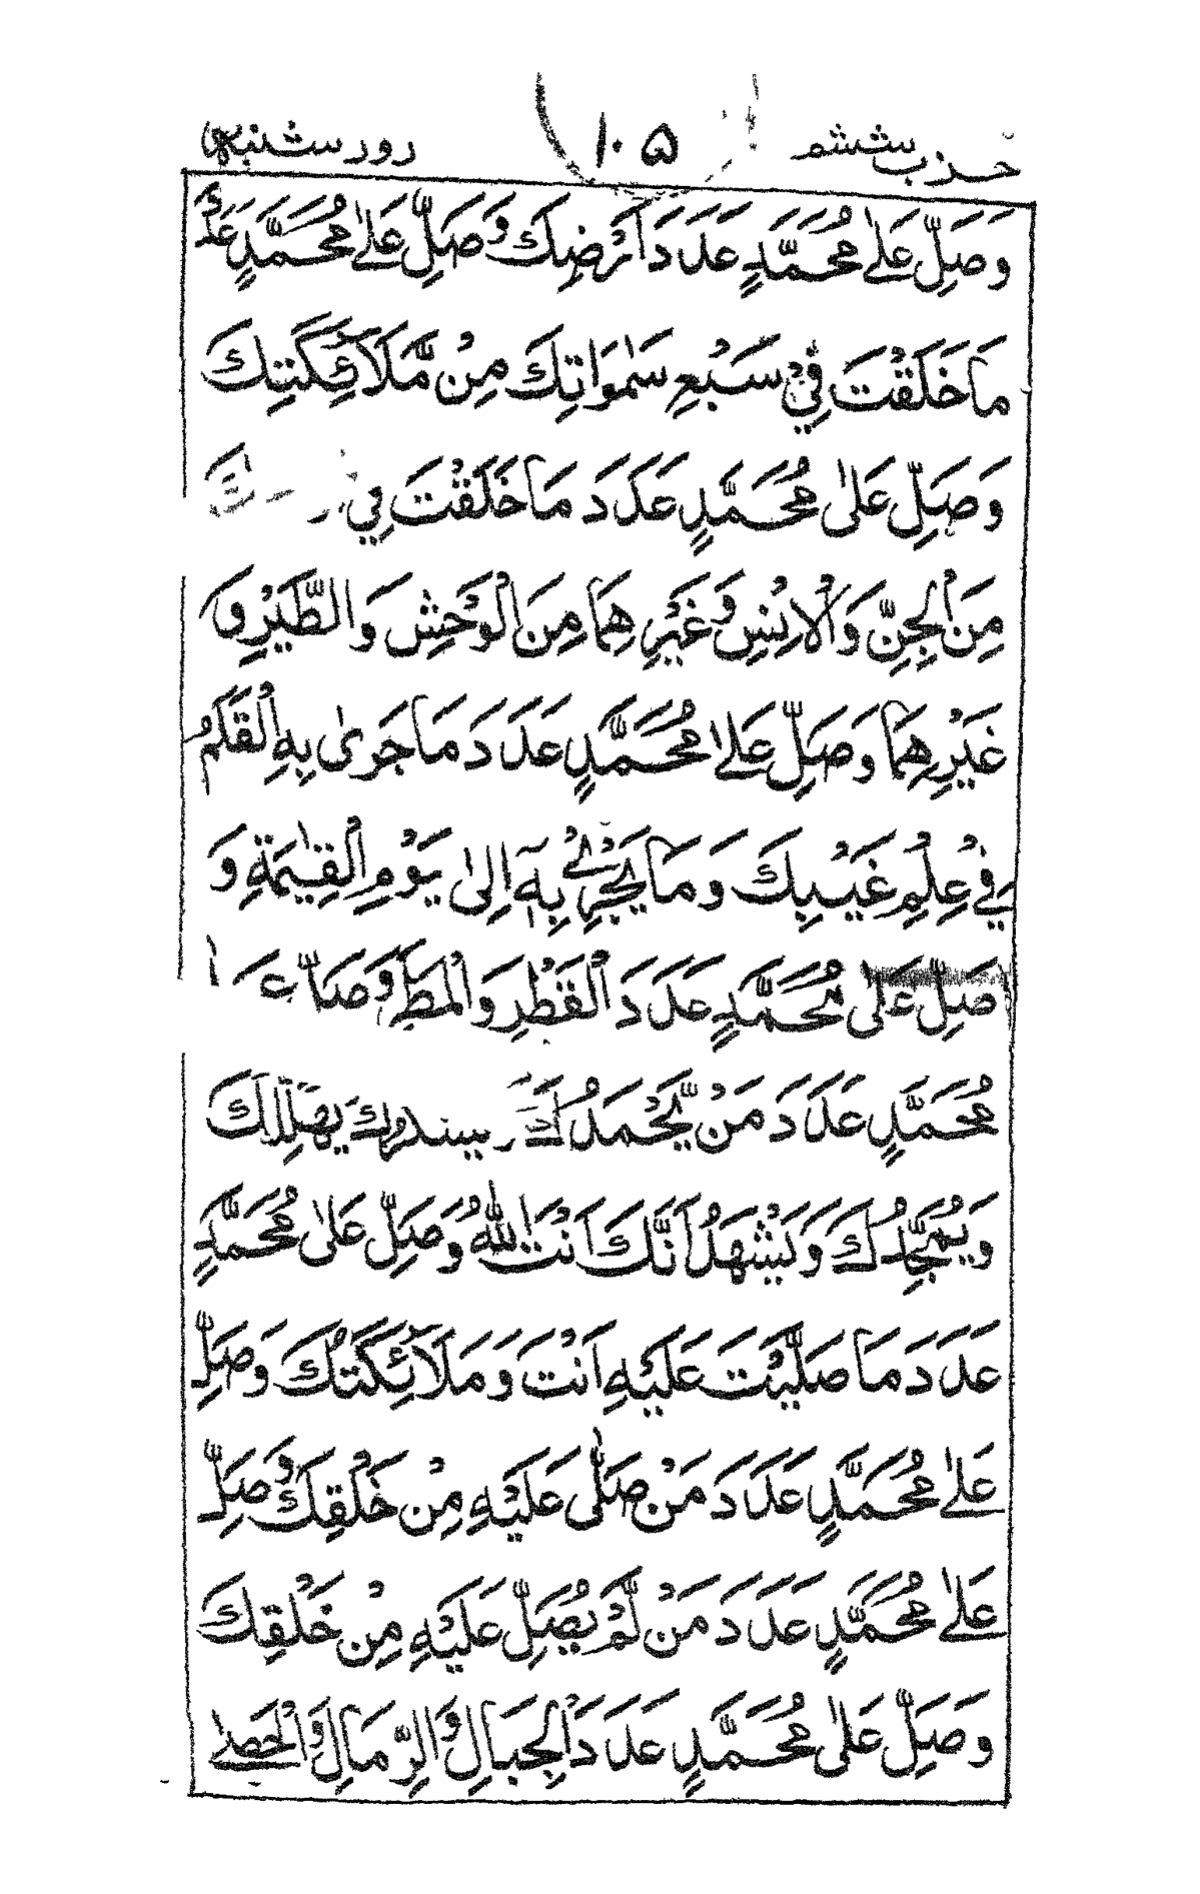 حزب ششم ۱۰۵ روز شنبہ
وَصَلِّ عَلٰى مُحَمَّدٍ عَدَدَ اَرْضِكَ وَصَلِّ عَلٰى مُحَمَّدٍ عَدَدَ
مَا خَلَقْتَ فِيْ سَبْعِ سَمٰوَاتِكَ مِنْ مَّلَآئِكَتِكَ
وَصَلِّ عَلٰى مُحَمَّدٍ عَدَدَ مَا خَلَقْتَ فِيْ
مِنَ الْجِنِّ وَالْاِنْسِ وَغَيْرِهِمَا مِنَ الْوَحْشِ وَالطَّيْرِ وَ
غَيْرِهِمَا وَصَلِّ عَلٰى مُحَمَّدٍ عَدَدَ مَا جَرٰى بِهِ الْقَلَمُ
فِيْ عِلْمِ غَيْبِكَ وَمَا يَجْرِيْ بِهٖٓ اِلٰى يَوْمِ الْقِيٰمَةِ وَ
صَلِّ عَلٰى مُحَمَّدٍ عَدَدَ الْقَطْرِ وَالْمَطَرِ وَصَلِّ عَلٰى
مُحَمَّدٍ عَدَدَ مَنْ يَّحْمَدُكَ وَيَشْكُرُكَ يُهَلِّلُكَ
وَيُمَجِّدُكَ وَيَشْهَدُ اَنَّكَ اَنْتَ اللّٰهُ وَصَلِّ عَلٰى مُحَمَّدٍ
عَدَدَ مَا صَلَّيْتَ عَلَيْهِ اَنْتَ وَمَلَآئِكَتُكَ وَصَلِّ
عَلٰى مُحَمَّدٍ عَدَدَ مَنْ صَلّٰى عَلَيْهِ مِنْ خَلْقِكَ وَصَلِّ
عَلٰى مُحَمَّدٍ عَدَدَ مَنْ لَّمْ يُصَلِّ عَلَيْهِ مِنْ خَلْقِكَ
وَصَلِّ عَلٰى مُحَمَّدٍ عَدَدَ الْجِبَالِ وَالرِّمَالِ وَالْحَصٰى